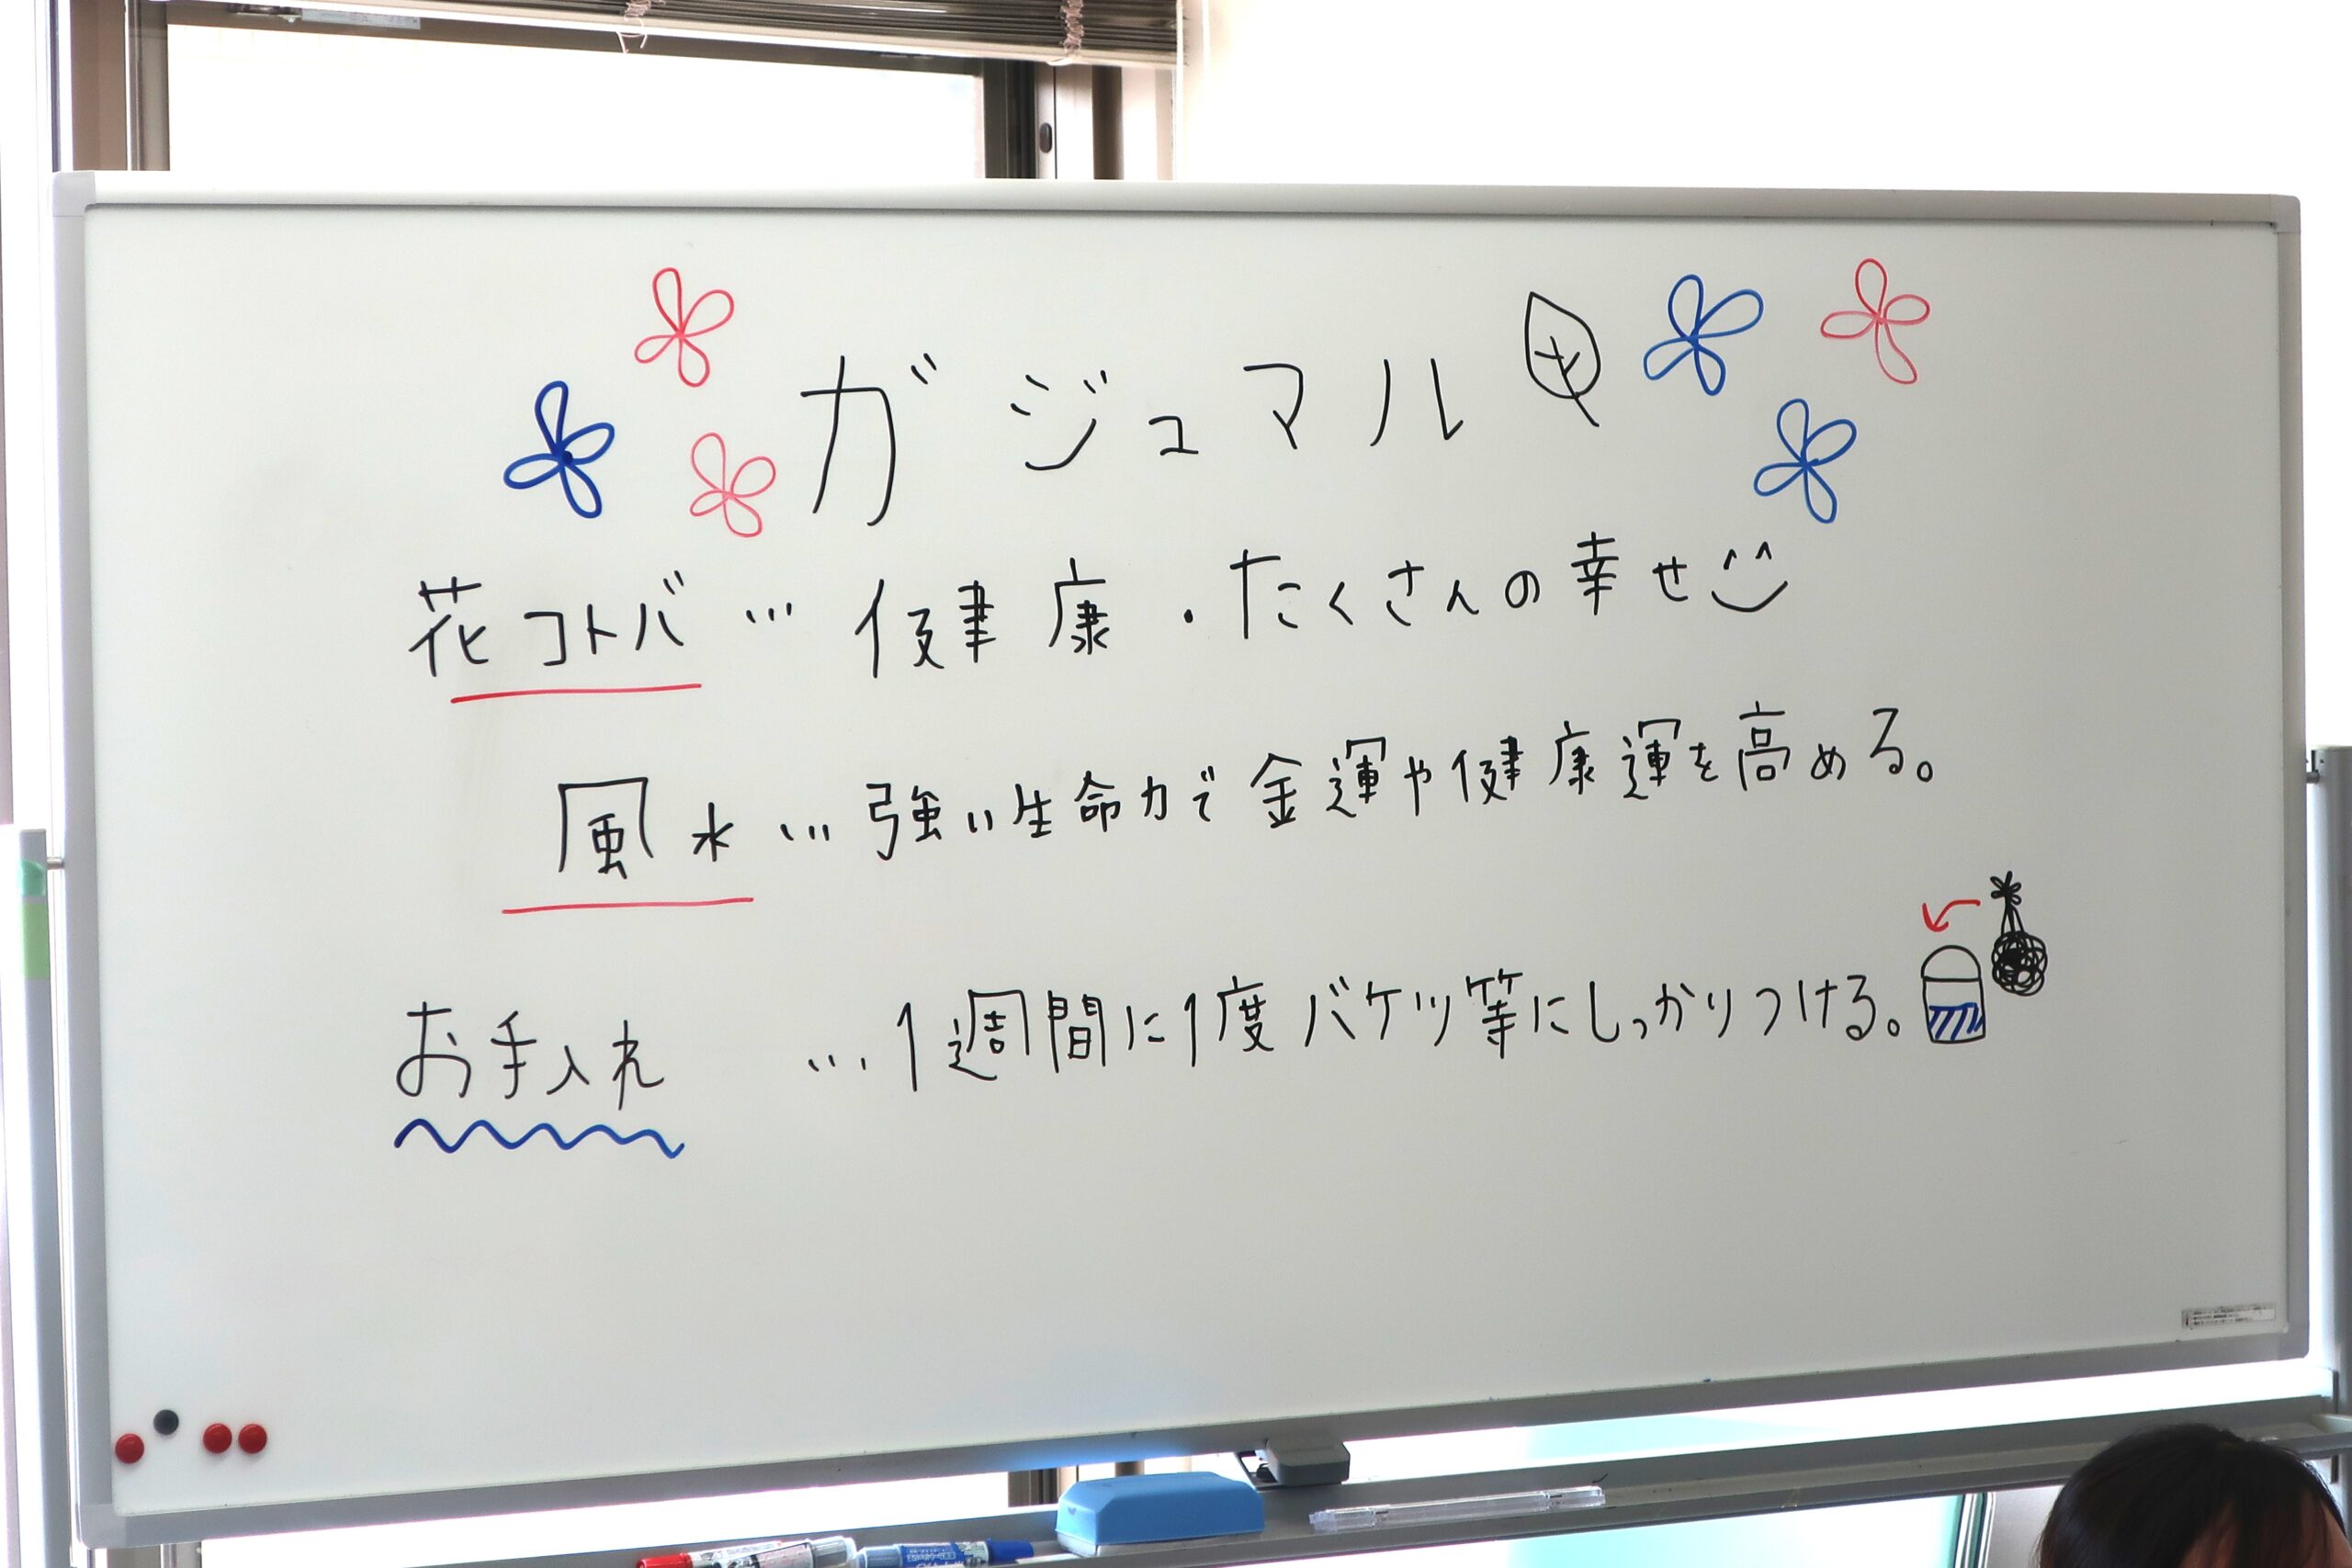 ガジュマル
花コトバ … 健康・たくさんの幸せ
風水 … 強い生命力で金運や健康運を高める。
お手入れ … 1週間に1度バケツ等にしっかりつける。